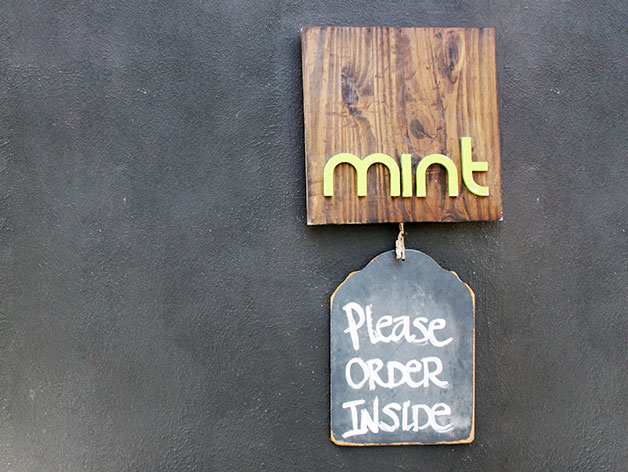 mint
Please
ORDER
INSIDE